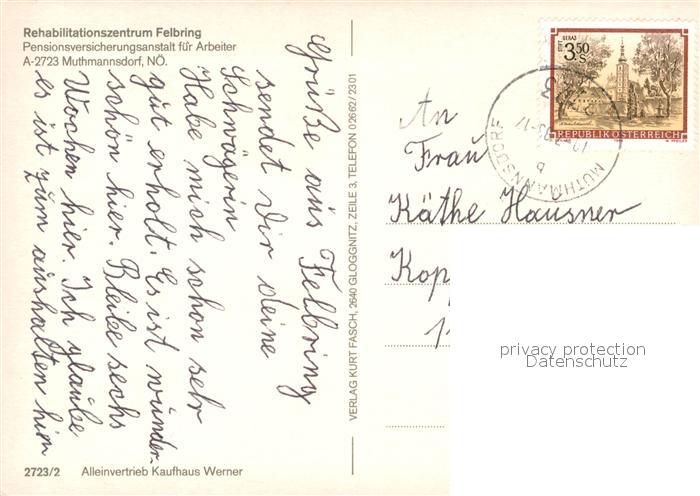 Rehabilitationszentrum Felbring
Pensionsversicherungsanstalt für Arbeiter
A-2723 Muthmannsdorf, NÖ.
Grüße aus Felbring
sendet Dir deine
Schwägerin
Habe mich schon sehr
gut erholt. Es ist wunder-
schön hier. Bleibe sechs
Wochen hier. Ich glaube
es ist zum aushalten hier
2723/2 Alleinvertrieb Kaufhaus Werner
VERLAG KURT FASCH, 2640 GLOGGNITZ, ZEILE 3, TELEFON 02662/2301
GERAS
3.50
S
REPUBLIK ÖSTERREICH
MUTHMANNSDORF
b
An
Frau
Käthe Hausner
Kop
1
privacy protection
Datenschutz